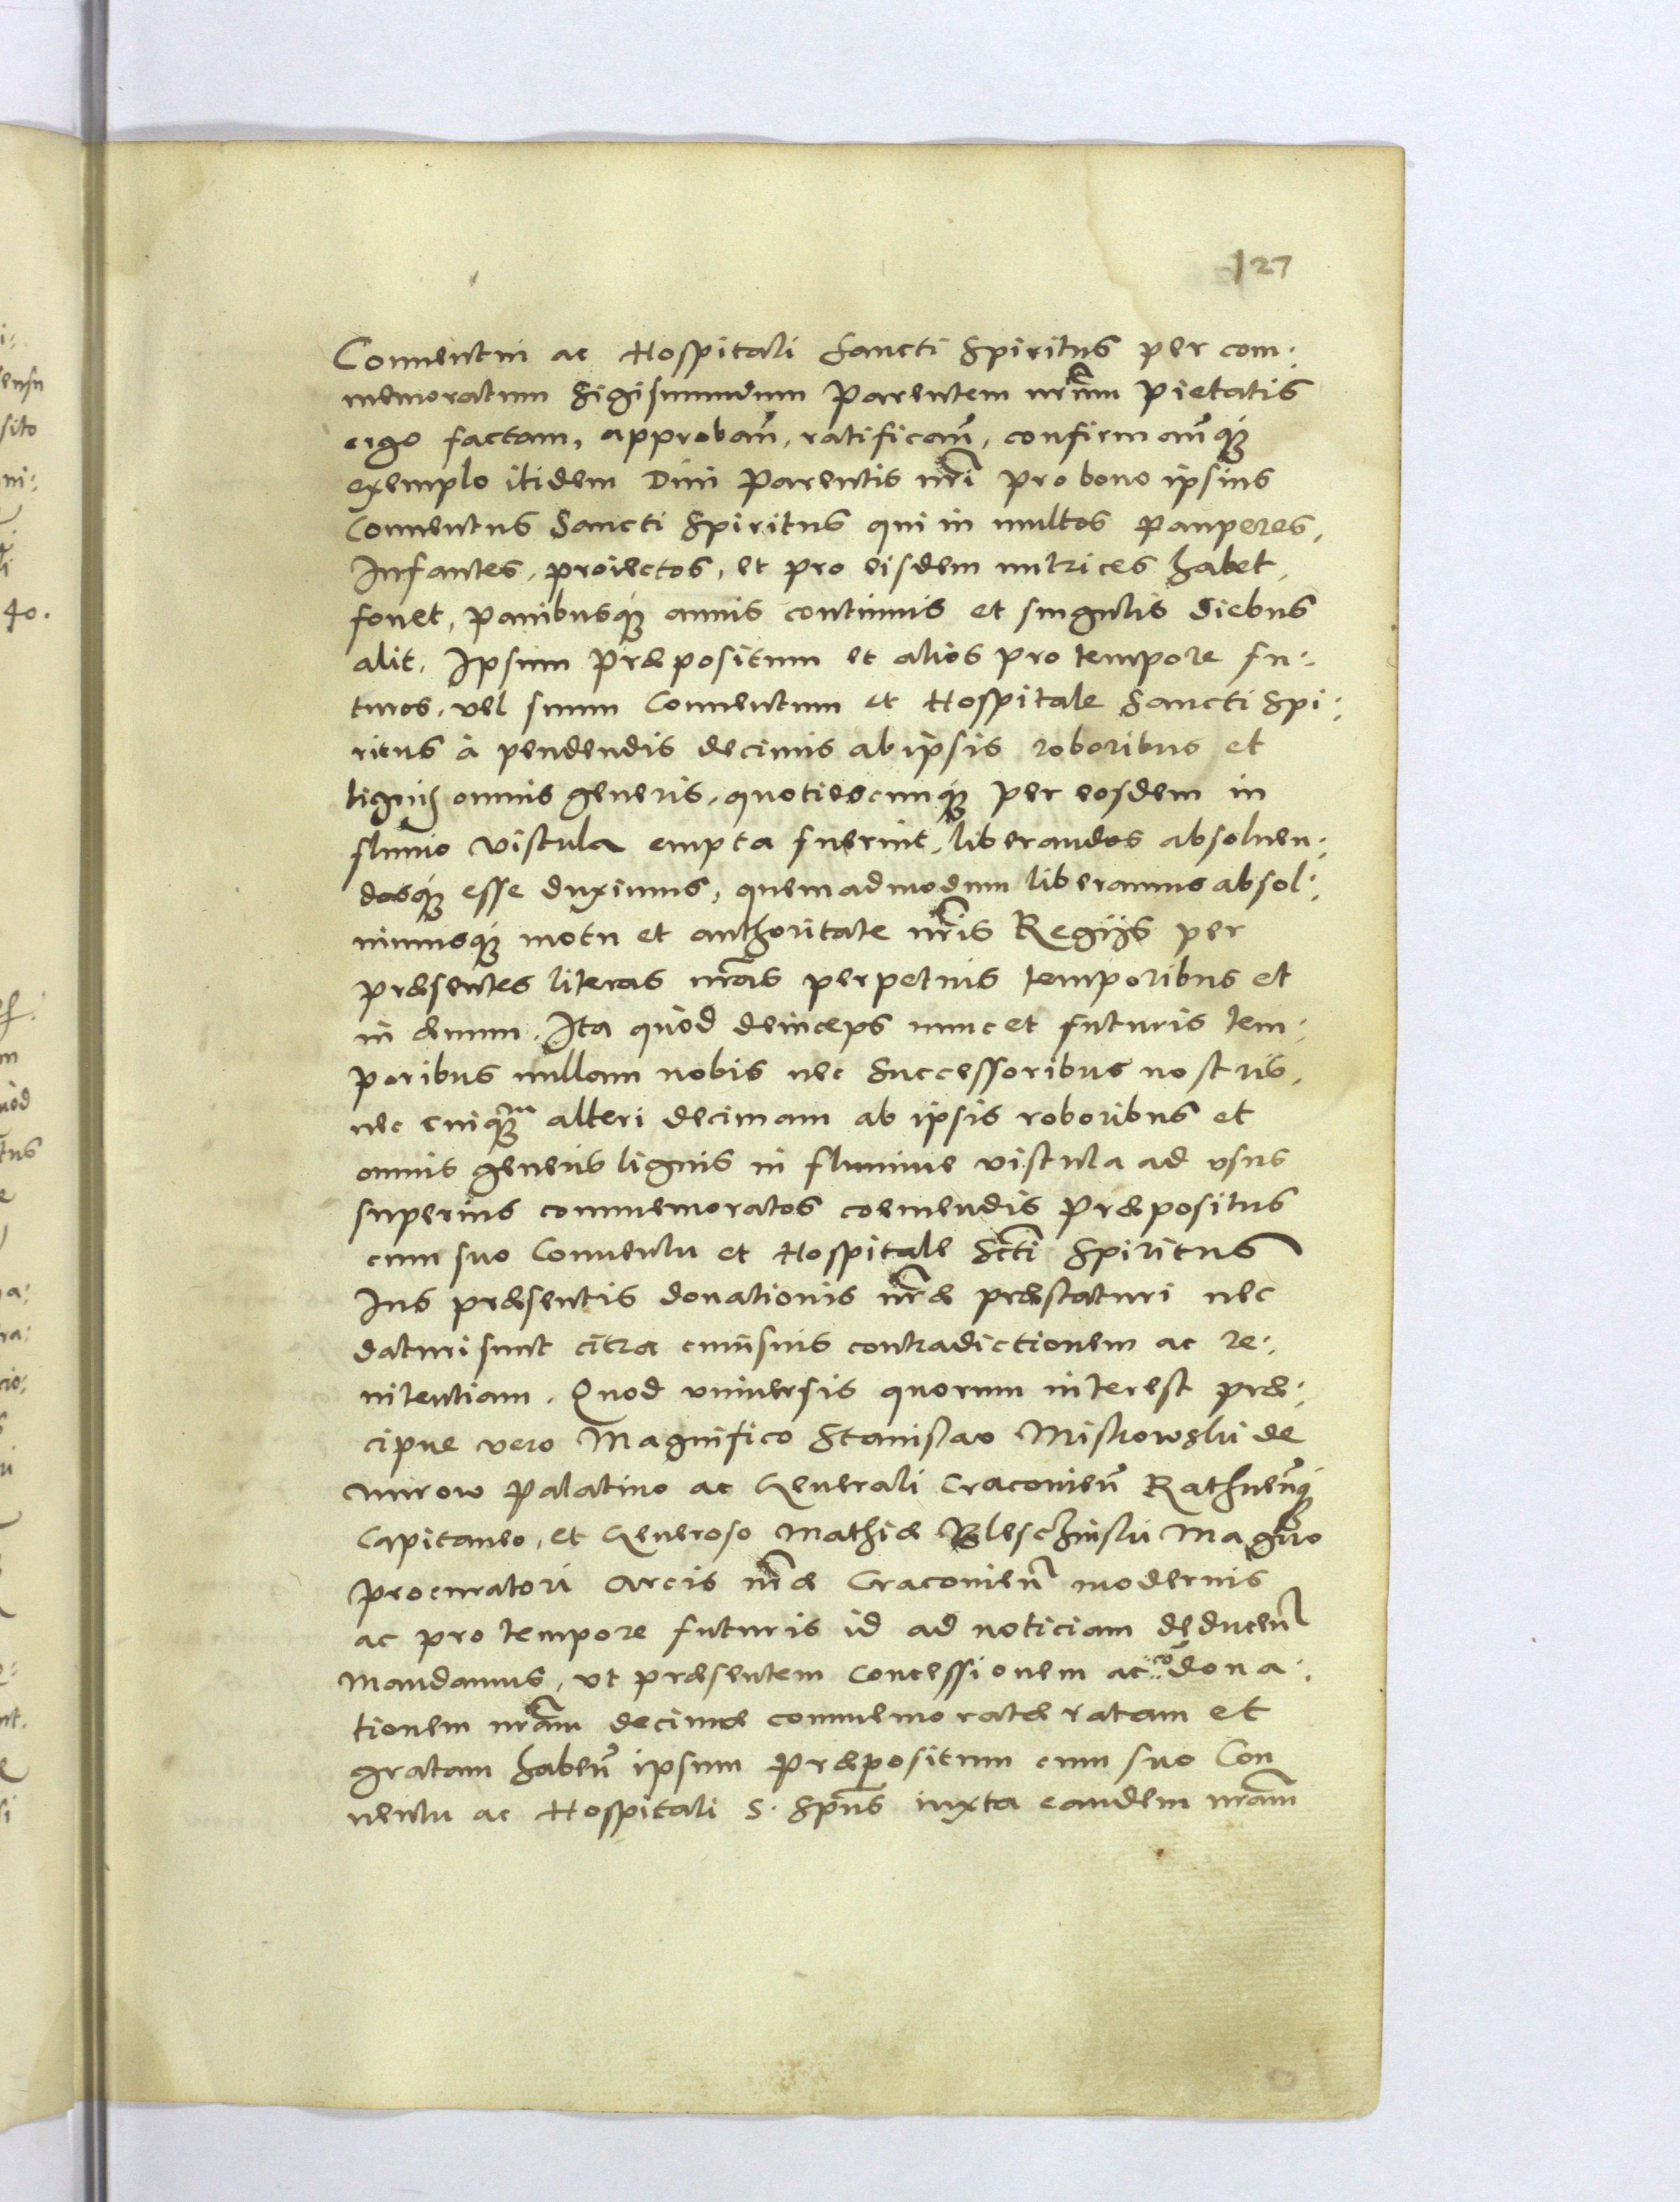 127
Conuentui ac Hospitali Sancti Spiritus per com:
memoratum Sigismundum Parentem nrūm Pietatis
ergo factam, approbań, ratificań, confirmań q3
exemplo itidem Diui Parentis nrī pro bono ipsius
Conuentus Sancti Spiritus qui in multos pauperes,
Infantes, proiectos, et pro eisdem nutrices habet,
fouet, panibusq3 annis continuis et singulis diebus
alit. Ipsum Præpositum et alios pro tempore fu:
turos, vel suum Conuentum et Hospitale Sancti Spi:
ritus à pendendis decimis ab ipsis roboribus et
lignis omnis generis, quotiescunq3 per eosdem in
fluuio Vistula empta fuerint, liberandos absoluen:
dosq3 esse duximus, quemadmodum liberamus absol:
uimusq3 motu et authoritate nrīs Regijs per
præsentes literas nrās perpetuis temporibus et
in æuum. Ita quòd deinceps nunc et futuris tem:
poribus nullam nobis nec Successoribus nostris,
nec cuiq3m alteri decimam ab ipsis roboribus et
omnis generis lignis in flumine vistula ad vsus
superius commemoratos coemendis Præpositus
cum suo Conuentu et Hospitale Sctī Spiritus
Ius præsentis donationis nræ præstaturi nec
daturi sunt citra cuiusuis contradictionem ac re:
nitentiam. Quod vniuersis quorum interest præ:
cipue vero Magnifico Stanislao Miskowski de
mirow Palatino ac Generali Cracouień Rathneńq3
Capitaneo, et Generoso Mathiæ Bleschinski Magno
procuratori Arcis nræ Cracouień modernis
ac pro tempore futuris id ad noticiam deduceń
Mandamus, vt præsentem Concessionem ac cōdona:
tionem nrām decimæ commemoratæ ratam et
gratam habeń ipsum Præpositum cum suo Con
uentu ac Hospitali S. Spūs iuxta eandem nrām